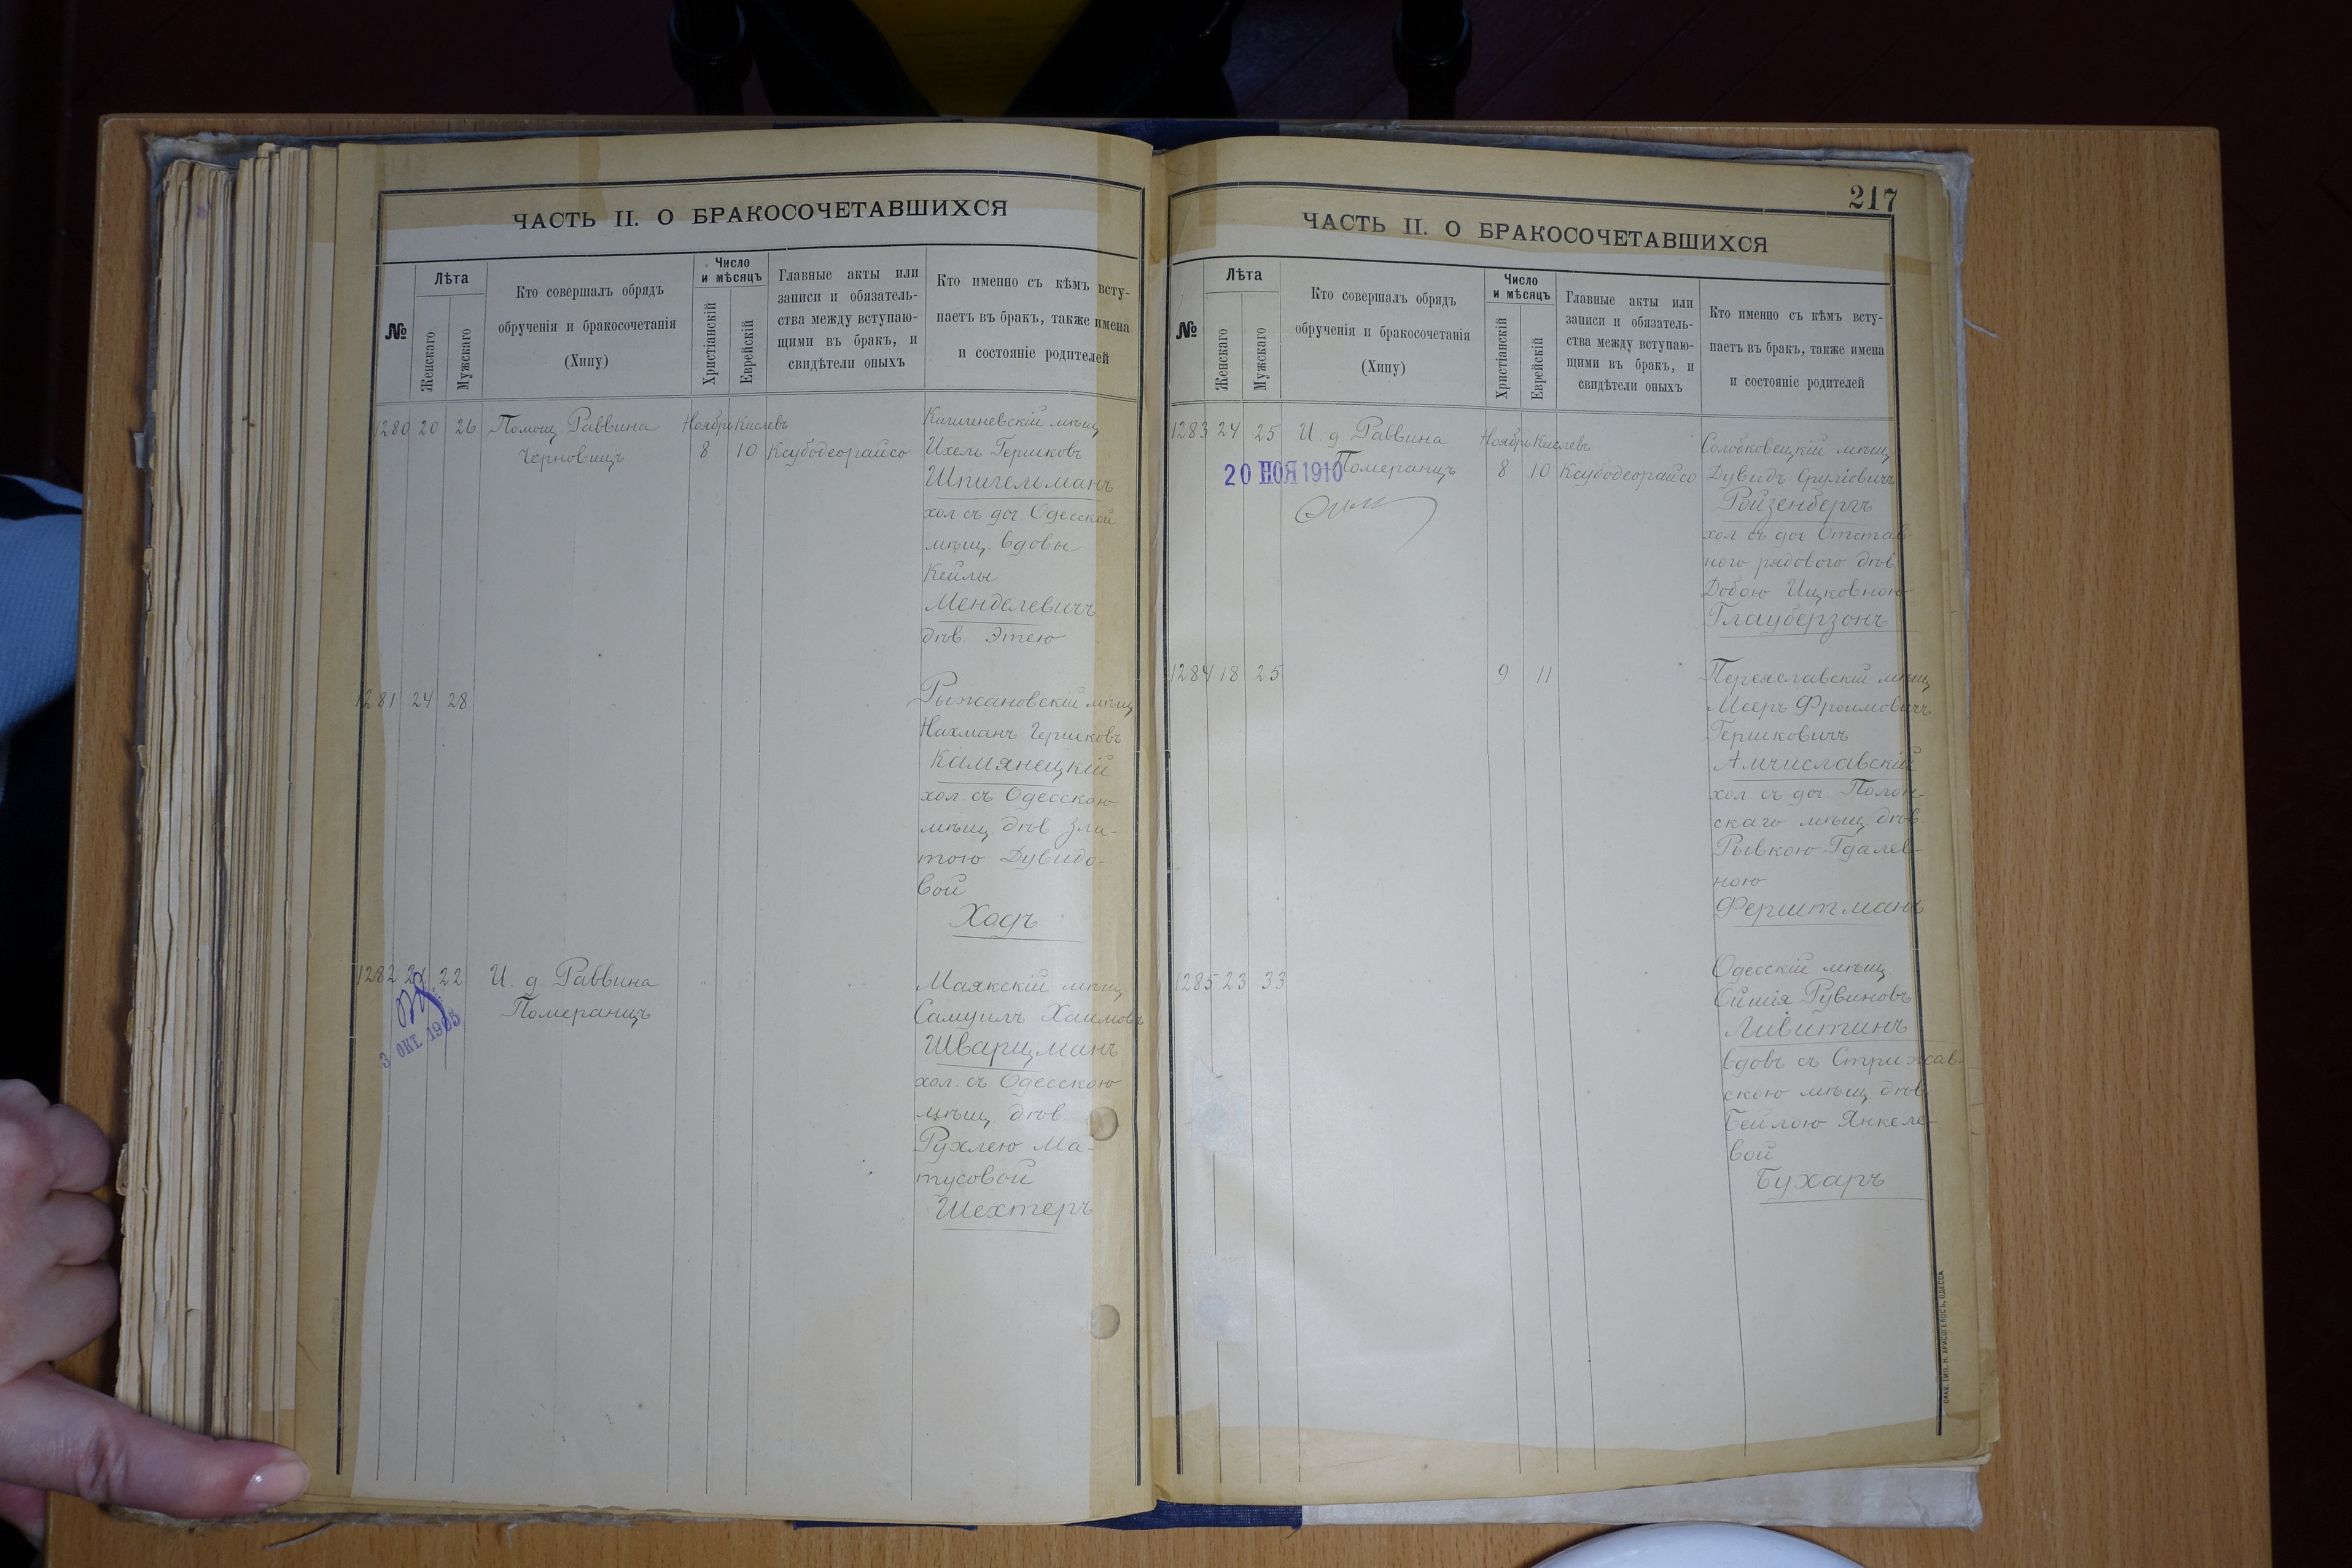 ЧАСТЬ II. О БРАКОСОЧЕТАВШИХСЯ
№
Лѣта
Женскаго
Мужскаго
Кто совершалъ обрядъ
обрученія и бракосочетанія
(Хипу)
Число
и мѣсяцъ
Христіанскій
Еврейскій
Главные акты или
записи и обязатель-
ства между вступаю-
щими въ бракъ, и
свидѣтели оныхъ
Кто именно съ кѣмъ всту-
паетъ въ бракъ, также имена
и состояніе родителей
1280 20 26 Помощ. Раввина
Черновицъ
Ноябрь Кислевъ
8 10 Ксубодеорайсо
Кишиневскій мѣщ
Ихель Гершковъ
Шпигельманъ
хол съ доч Одесской
мѣщ. вдовы
Кейлы
Менделевичъ
дѣв Этею
1281 24 28
Рыжановскій мѣщ
Нахманъ Гершковъ
Камянецкій
хол. съ Одесскою
мѣщ. дѣв. Зла-
тою Дувидо-
вой
Ходъ
1282 21 22 И. д. Раввина
Померанцъ
3 ОКТ. 1905
Маякскій мѣщ.
Самуилъ Хаимовъ
Шварцманъ
хол. съ Одесскою
мѣщ. дѣв.
Рухлею Ма-
тусовой
Шехтеръ
217
ЧАСТЬ II. О БРАКОСОЧЕТАВШИХСЯ
№
Лѣта
Женскаго
Мужскаго
Кто совершалъ обрядъ
обрученія и бракосочетанія
(Хипу)
Число
и мѣсяцъ
Христіанскій
Еврейскій
Главные акты или
записи и обязатель-
ства между вступаю-
щими въ бракъ, и
свидѣтели оныхъ
Кто именно съ кѣмъ всту-
паетъ въ бракъ, также имена
и состояніе родителей
1283 24 25 И. д. Раввина
Померанцъ
20 НОЯ 1910
Ноябрь Кислевъ
8 10 Ксубодеорайсо
Солобковецкій мѣщ
Дувидъ Сруліовичъ
Ройзенбергъ
хол съ доч Отстав-
ного рядового дѣв
Добою Ицковною
Глауберзонъ
1284 18 25
9 11
Переяславскій мѣщ
Мееръ Фроимовичъ
Гершковичъ
Амчиславскій
хол. съ доч. Полон-
скаго мѣщ. дѣв.
Рывкою Гдалев-
ною
Ферштманъ
1285 23 33
Одесскій мѣщ.
Ойшія Рувиновъ
Ливитинъ
вдовъ съ Стрижав-
скою мѣщ. дѣв.
Бейлою Янкеле-
вой
Бухаръ